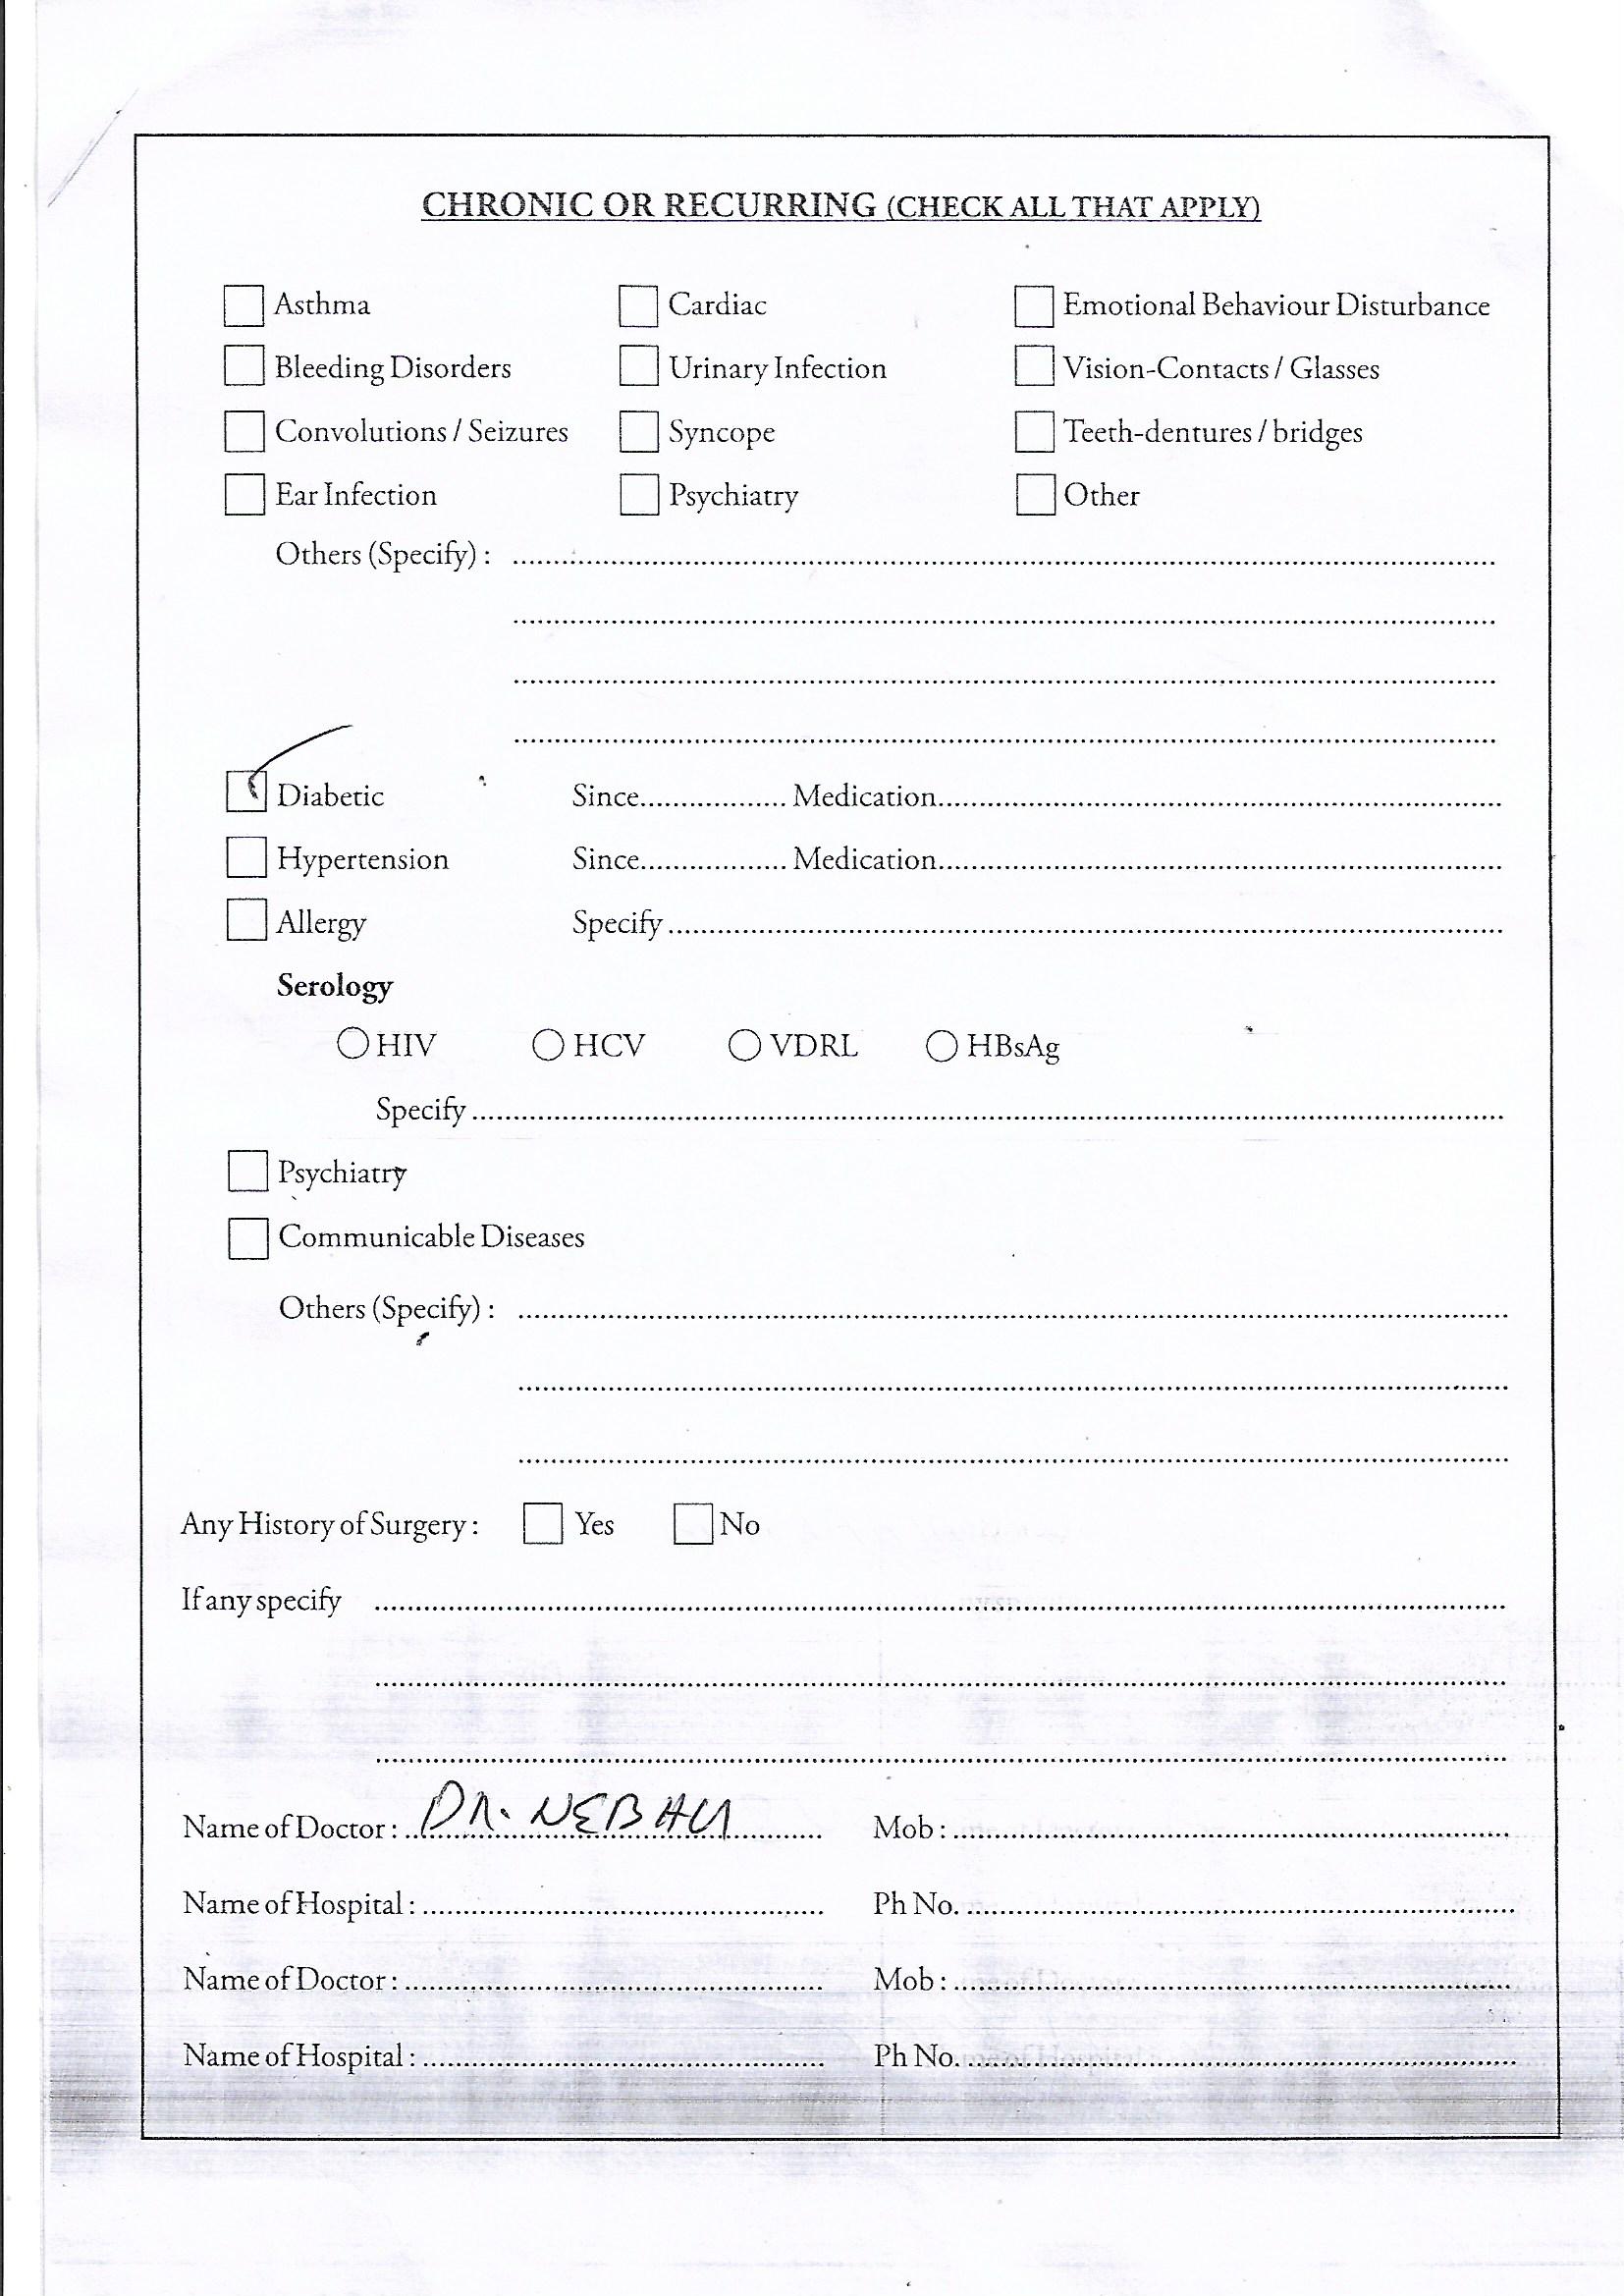 CHRONIC OR RECURRING (CHECK ALL THAT APPLY)
Asthma Cardiac Emotional Behaviour Disturbance
Bleeding Disorders Urinary Infection Vision-Contacts / Glasses
Convolutions / Seizures Syncope Teeth-dentures / bridges
Ear Infection Psychiatry Other
Others (Specify) :
Diabetic Since................ Medication................
Hypertension Since................ Medication................
Allergy Specify................
Serology
HIV HCV VDRL HBsAg
Specify................
Psychiatry
Communicable Diseases
Others (Specify) :
Any History of Surgery : Yes No
If any specify
Name of Doctor : DR. Mob :
Name of Hospital : Ph No.
Name of Doctor : Mob :
Name of Hospital : Ph No.